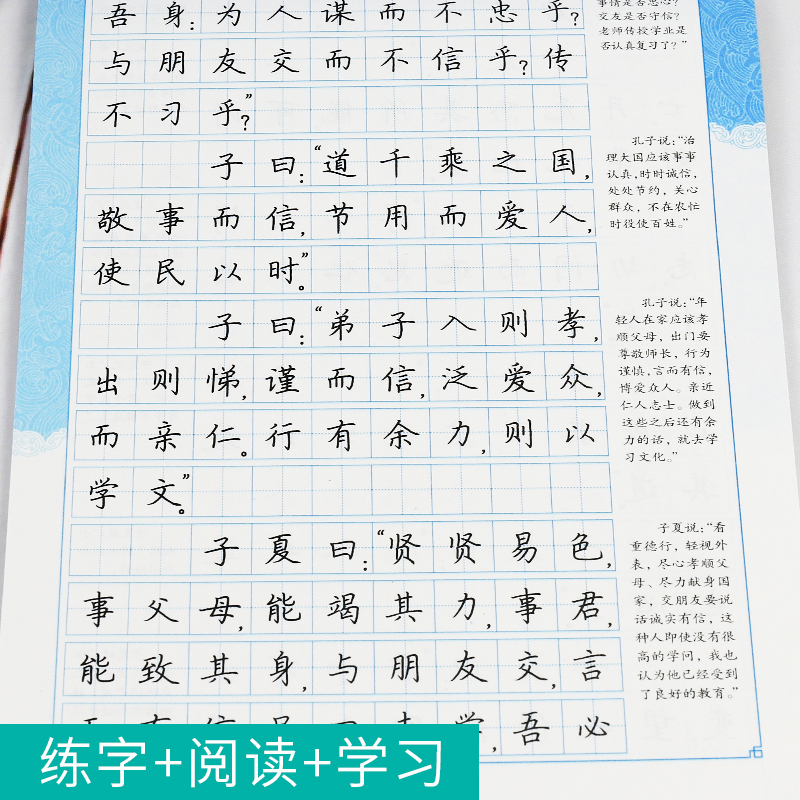 吾身：为人谋而不忠乎？
与朋友交而不信乎？传
不习乎？”
子曰：“道千乘之国，
敬事而信，节用而爱人，
使民以时”。
子曰：“弟子入则孝，
出则悌，谨而信，泛爱众，
而亲仁。行有余力，则以
学文”。
子夏曰：“贤贤易色，
事父母，能竭其力，事君，
能致其身，与朋友交，言
吾必
交友是否守信？
老师传授学业是
否认真复习了？”
孔子说：“治
理大国应该事事
认真，时时诚信，
处处节约，关心
群众，不在农忙
时役使百姓。”
孔子说：“年
轻人在家应该孝
顺父母，出门要
尊敬师长，行为
谨慎，言而有信，
博爱众人。亲近
仁人志士。做到
这些之后还有余
力的话，就去学
习文化。”
子夏说：“看
重德行，轻视外
表，尽心孝顺父
母、尽力献身国
家，交朋友要说
话诚实有信，这
种人即使没有很
高的学问，我也
认为他已经受到
了良好的教育。”
练字+阅读+学习